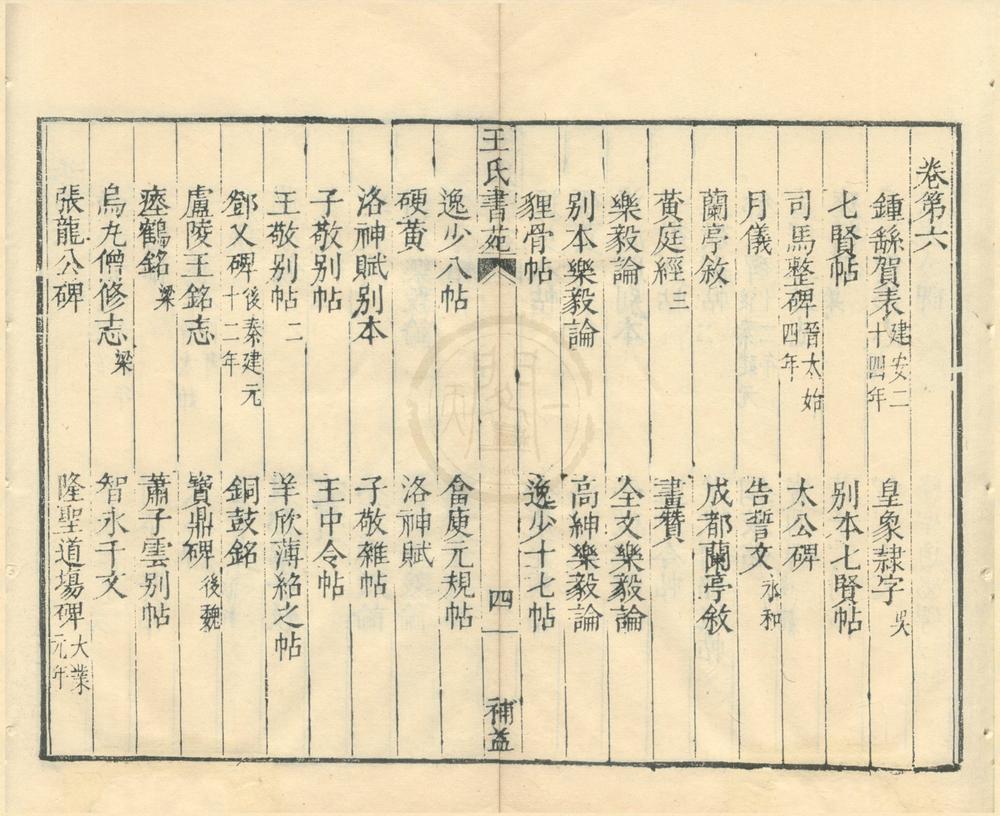 卷第六
鍾繇賀表 建安二十四年 皇象隸字 吳
七賢帖 別本七賢帖
司馬整碑 晉太始四年 太公碑
月儀 告誓文 永和
蘭亭敘 成都蘭亭敘
黃庭經 三 畫贊
樂毅論 全文樂毅論
別本樂毅論 高紳樂毅論
貍骨帖 逸少十七帖
王氏書苑 四 補益
逸少八帖 會庾元規帖
硬黃 洛神賦
洛神賦別本 子敬雜帖
子敬別帖 王中令帖
王敬別帖 二 羊欣薄紹之帖
鄧乂碑 後秦建元十二年 銅鼓銘
盧陵王銘志 寶鼎碑 後魏
瘞鶴銘 梁 蕭子雲別帖
烏丸僧修志 梁 智永千文
張龍公碑 隆聖道塲碑 大業元年